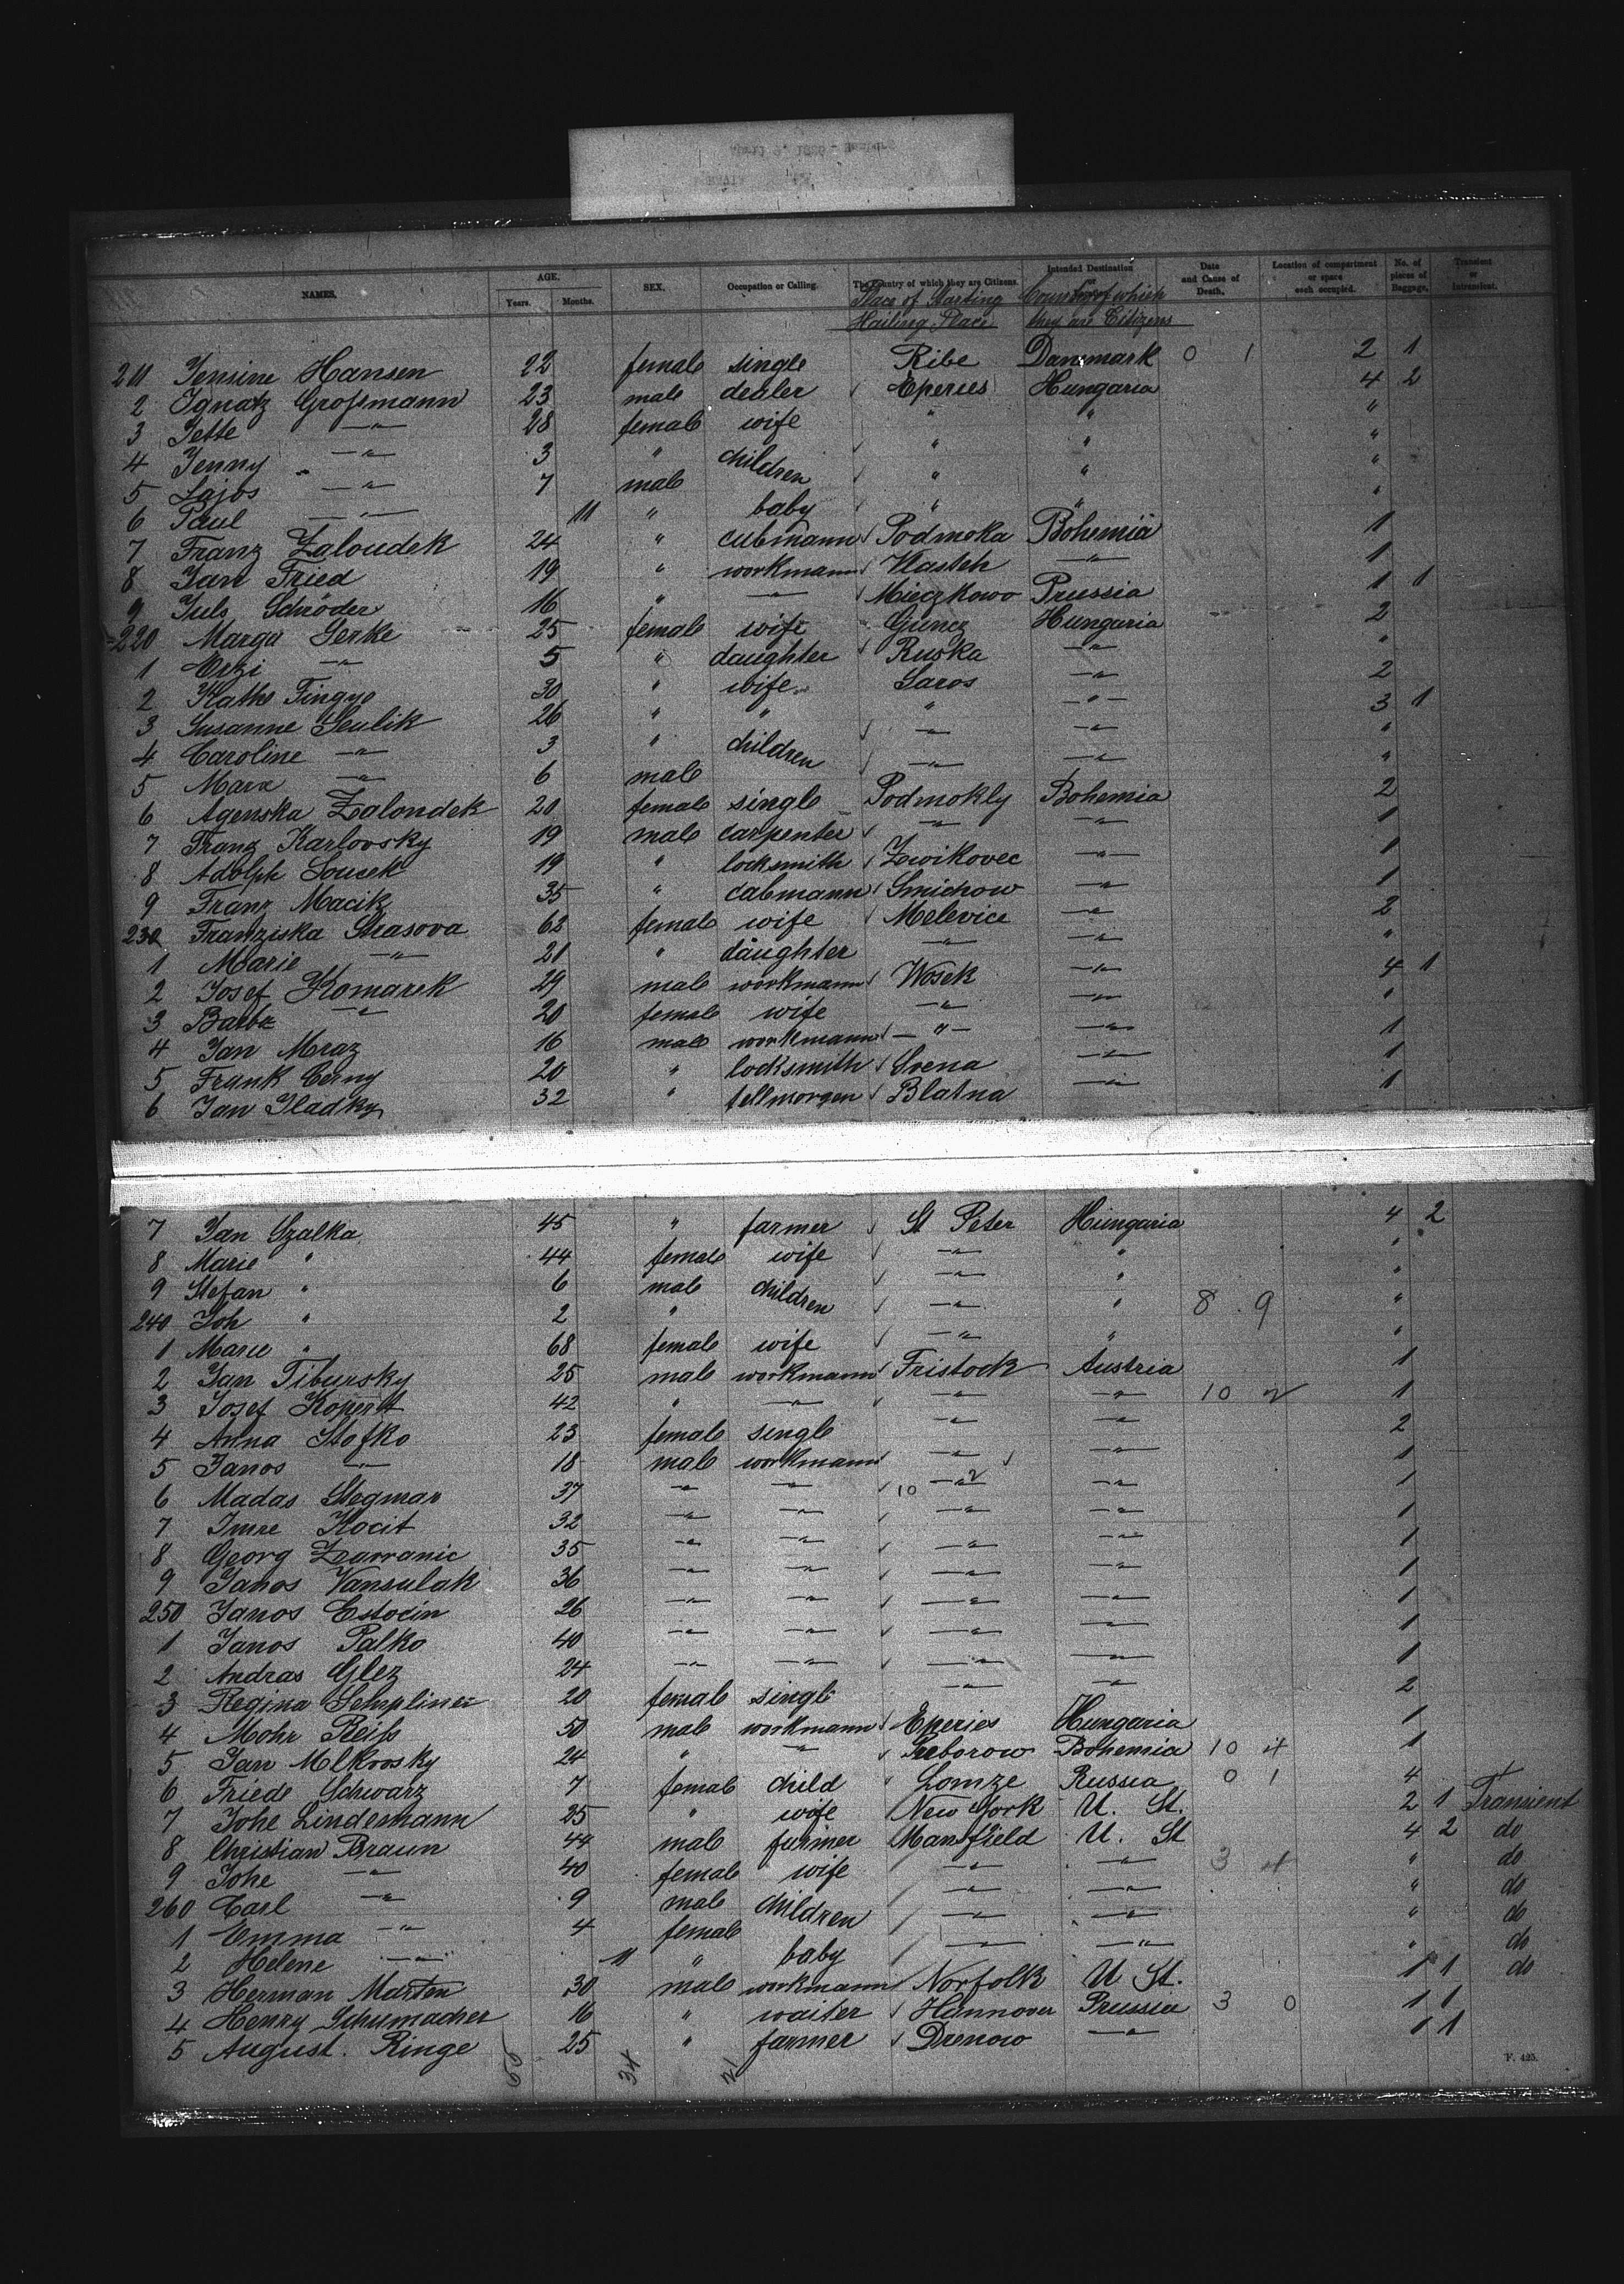 NAMES. AGE. Years. Months. SEX. Occupation or Calling. The Country of which they are Citizens. Intended Destination or Date and Cause of Death. Location of compartment or space each occupied. No. of pieces of Baggage. Transient or Intransient.
Place of Starting Country of which
Hailing Place they are Citizens
211 Jensine Hansen 22 female single Ribe Danmark 0 1 2 1
2 Ignatz Großmann 23 male dealer Eperies Hungaria 4 2
3 Jette —"— 28 female wife " " "
4 Jenny —"— 3 " children " " "
5 Lajos —"— 7 male " " "
6 Paul —"— 11 " baby " " "
7 Franz Zaloudek 24 " cubmann Podmoka Bohemia 1
8 Jan Fried 19 " workmann Hasteh —"— 1
9 Juls Schröder 16 " —"— Mieczkowo Prussia 1 1
220 Marga Gerke 25 female wife Güncz Hungaria 2
1 Erzi —"— 5 " daughter Ruska —"— "
2 Kathe Tingyo 30 " wife Saros —"— 2
3 Susanne Seulik 26 " " " —"— 3 1
4 Caroline —"— 3 " children —"— —"— "
5 Marx —"— 6 male —"— —"— "
6 Agenska Zaloudek 20 female single Podmokly Bohemia 2
7 Franz Karlovsky 19 male carpenter —"— —"— 1
8 Adolph Sousek 19 " locksmith Zwikovec —"— 1
9 Franz Macik 35 " cabmann Smichow —"— 1
230 Franziska Strasova 62 female wife Melevice —"— 2
1 Marie —"— 21 " daughter —"— —"— "
2 Josef Komarek 29 male workmann Wosek —"— 4 1
3 Barba —"— 20 female wife —"— —"— "
4 Jan Mraz 16 male workmann —"— —"— 1
5 Frank Cerny 20 " locksmith Svena —"— 1
6 Jan Hladky 32 " fellmorgen Blatna —"— 1
7 Jan Szalka 45 " farmer St Peter Hungaria 4 2
8 Marie " 44 female wife —"— " "
9 Stefan " 6 male children —"— " "
240 Joh " 2 " —"— " 8 9 "
1 Marie " 68 female wife —"— " "
2 Jan Tibursky 25 male workmann Fristock Austria 1
3 Josef Kopertt 42 " —"— —"— —"— 10 2 1
4 Anna Stofko 23 female single —"— —"— 2
5 Janos —"— 18 male workmann —"— —"— 1
6 Madas Stegmar 37 —"— —"— 10 —"— 2 —"— 1
7 Imre Kocit 32 —"— —"— —"— —"— 1
8 Georg Zavranic 35 —"— —"— —"— —"— 1
9 Janos Vansulak 36 —"— —"— —"— —"— 1
250 Janos Estocin 26 —"— —"— —"— —"— 1
1 Janos Palko 40 —"— —"— —"— —"— 1
2 Andras Glez 24 —"— —"— —"— —"— 1
3 Regina Sempliner 20 female single —"— —"— 2
4 Mohr Reiß 50 male workmann Eperies Hungaria 1
5 Jan Mlkvosky 24 " —"— Greborow Bohemia 10 4 1
6 Friede Schwarz 7 female child Lomze Russia 0 1 4
7 Johe Lindemann 25 " wife New York U. St. 2 1 Transient
8 Christian Braun 44 male farmer Mansfield U. St 4 2 do
9 Johe —"— 40 female wife —"— —"— 3 4 " do
260 Carl —"— 9 male children —"— —"— " do
1 Emma —"— 4 female —"— —"— " do
2 Helene —"— 11 " baby —"— —"— " do
3 Herman Marten 30 male workmann Norfolk U St. 1 1 do
4 Henry Schumacher 16 " waiter Hannover Prussia 3 0 1 1
5 August Ringe 25 " farmer Drenow —"— 1 1
34 21
F. 425.